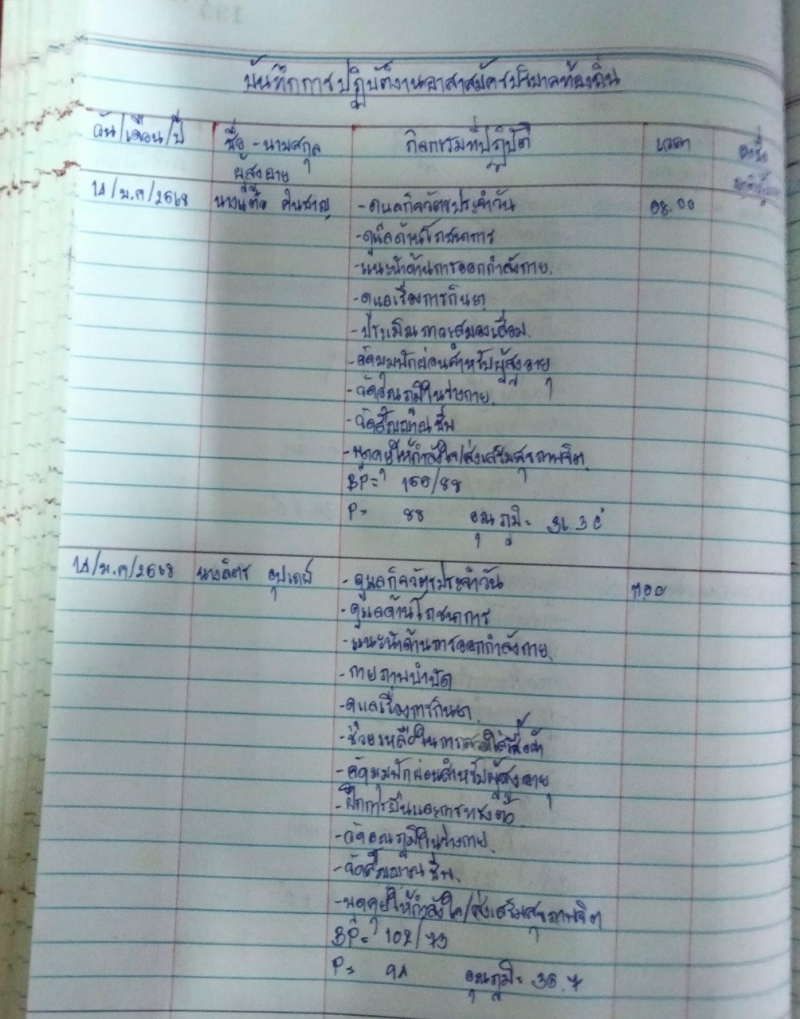 บันทึกการปฏิบัติงานอาสาสมัครบริบาลท้องถิ่น
วัน/เดือน/ปี ชื่อ-นามสกุล กิจกรรมที่ปฏิบัติ เวลา ลงชื่อ
ผู้สูงอายุ
14/ม.ค/2568 - ดูแลกิจวัตรประจำวัน 08.00
- ดูแลด้านโภชนาการ
- แนะนำด้านการออกกำลังกาย
- ดูแลเรื่องการกินยา
- ประเมินภาวะสมองเสื่อม
- จัดมุมพักผ่อนสำหรับผู้สูงอายุ
- วัดอุณภูมิในร่างกาย
- วัดสัญญาณชีพ
- พูดคุยให้กำลังใจ/ส่งเสริมสุขภาพจิต
BP =
P = 88 อุณภูมิ =
14/ม.ค/2568 - ดูแลกิจวัตรประจำวัน
- ดูแลด้านโภชนาการ
- แนะนำด้านการออกกำลังกาย
- กายภาพบำบัด
- ดูแลเรื่องการกินยา
- ช่วยเหลือในการสวมใส่เสื้อผ้า
- จัดมุมพักผ่อนสำหรับผู้สูงอายุ
- ฝึกการยืนและการทรงตัว
- วัดอุณภูมิในร่างกาย
- วัดสัญญาณชีพ
- พูดคุยให้กำลังใจ/ส่งเสริมสุขภาพจิต
BP = 102/73
P = 94 อุณภูมิ = 36.7